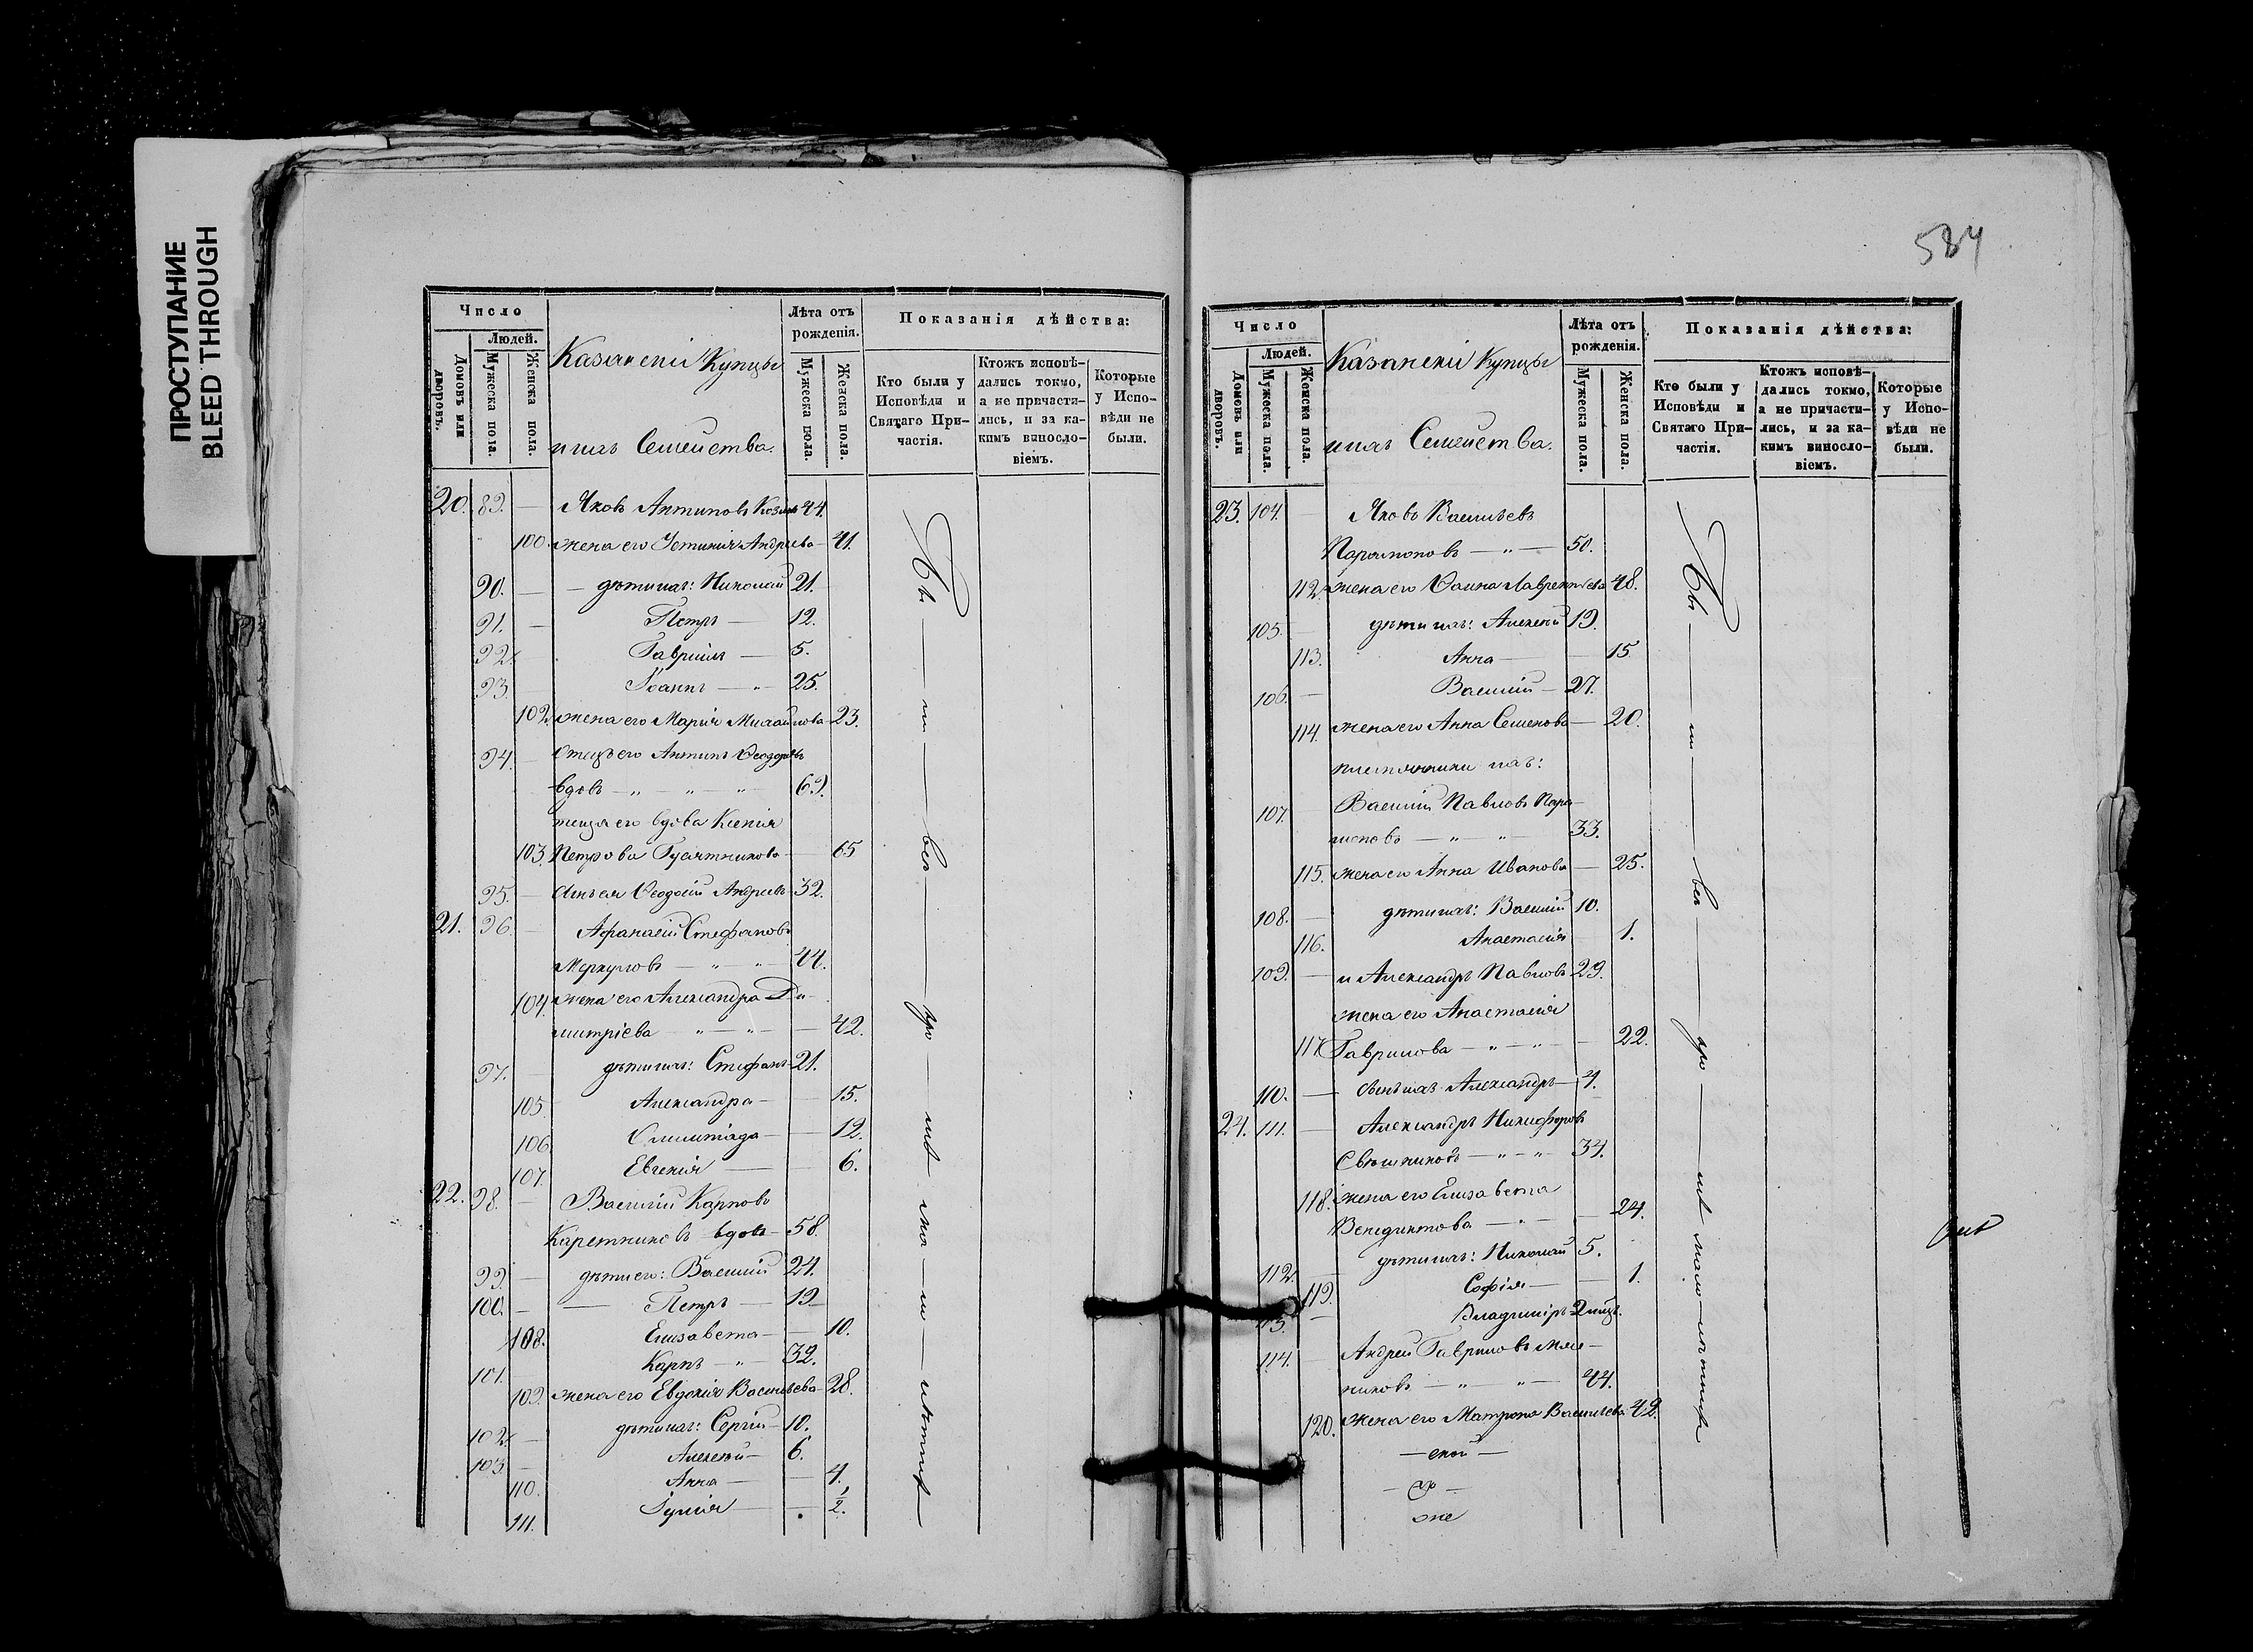 ПРОСТУПАНИЕ
BLEED THROUGH
584
Число
Людей.
Домовъ или дворовъ.
Мужеска пола.
Женска пола.
Казанскіи Купцы
и ихъ Семейства.
Лѣта отъ рожденія.
Мужеска пола.
Женска пола.
Показанія дѣйства:
Кто были у Исповѣди и Святаго Причастія.
Ктожъ исповѣдались токмо, а не причастились, и за какимъ винословіемъ.
Которые у Исповѣди не были.
20. 89. — Яковъ Антиповъ 44.
100. жена его Устинія Андреева — 41.
90. — дѣти ихъ: Николай 21.
91. — Петръ — 12.
92. — Гавріилъ — 5.
93. — Іоаннъ — „ — 25.
102. жена его Марія Михайлова 23.
94. — Отецъ его Антипъ Ѳеодоровъ
вдовъ — „ — „ — „ — 69.
теща его вдова Ксенія
103. Петрова Гусятникова — 65
95. — Ѳеодосій Андреевъ 32.
21. 96. — Афанасій Стефановъ
Меркуловъ — „ — „ — 44.
104. жена его Александра Ди-
митріева — „ — „ — 42.
97. — дѣти ихъ: Стефанъ 21.
105. Александра — 15.
106. Олимпіада — 12.
107. Евгенія — 6.
22. 98. — Василій Карповъ
Каретниковъ вдовъ — 58.
99. — дѣти его: Василій 24.
100. — Петръ — 19.
108. Елизавета — 10.
101. Карпъ — „ — 32.
109. жена его Евдокія Васильева — 28.
102. — дѣти ихъ: Сергій — 10.
103. — Алексѣй — 6.
110. Анна — 4.
111. Іулія — ½.
Число
Людей.
Домовъ или дворовъ.
Мужеска пола.
Женска пола.
Казанскіи Купцы
и ихъ Семейства.
Лѣта отъ рожденія.
Мужеска пола.
Женска пола.
Показанія дѣйства:
Кто были у Исповѣди и Святаго Причастія.
Ктожъ исповѣдались токмо, а не причастились, и за какимъ винословіемъ.
Которые у Исповѣди не были.
23. 104. — Яковъ Васильевъ
Парамоновъ — „ — 50.
112. жена его Лаврентьева 48.
105. — дѣти ихъ: Алексѣй 19.
113. Анна — 15.
106. — Василій — 27.
114. жена его Анна Семенова — 20.
племянники ихъ:
107. Василій Павловъ Пара-
моновъ — „ — „ — 33.
115. жена его Анна Иванова — 25.
108. — дѣти ихъ: Василій 10.
116. Анастасія 1.
109. — и Александръ Павловъ 29.
жена его Анастасія
117. Гаврилова — „ — „ — 22.
110. — сынъ ихъ Александръ — 4.
24. 111. — Александръ Никифоровъ
Свѣшниковъ — „ — „ — 34.
118. жена его Елизавета
Венедиктова — „ — 24.
112. — дѣти ихъ: Николай 5.
119. Софія — 1.
113. — Владиміръ 2 мѣц.
114. — Андрей Гавриловъ
никовъ — „ — „ — 44.
120. жена его Матрона Васильева 42.